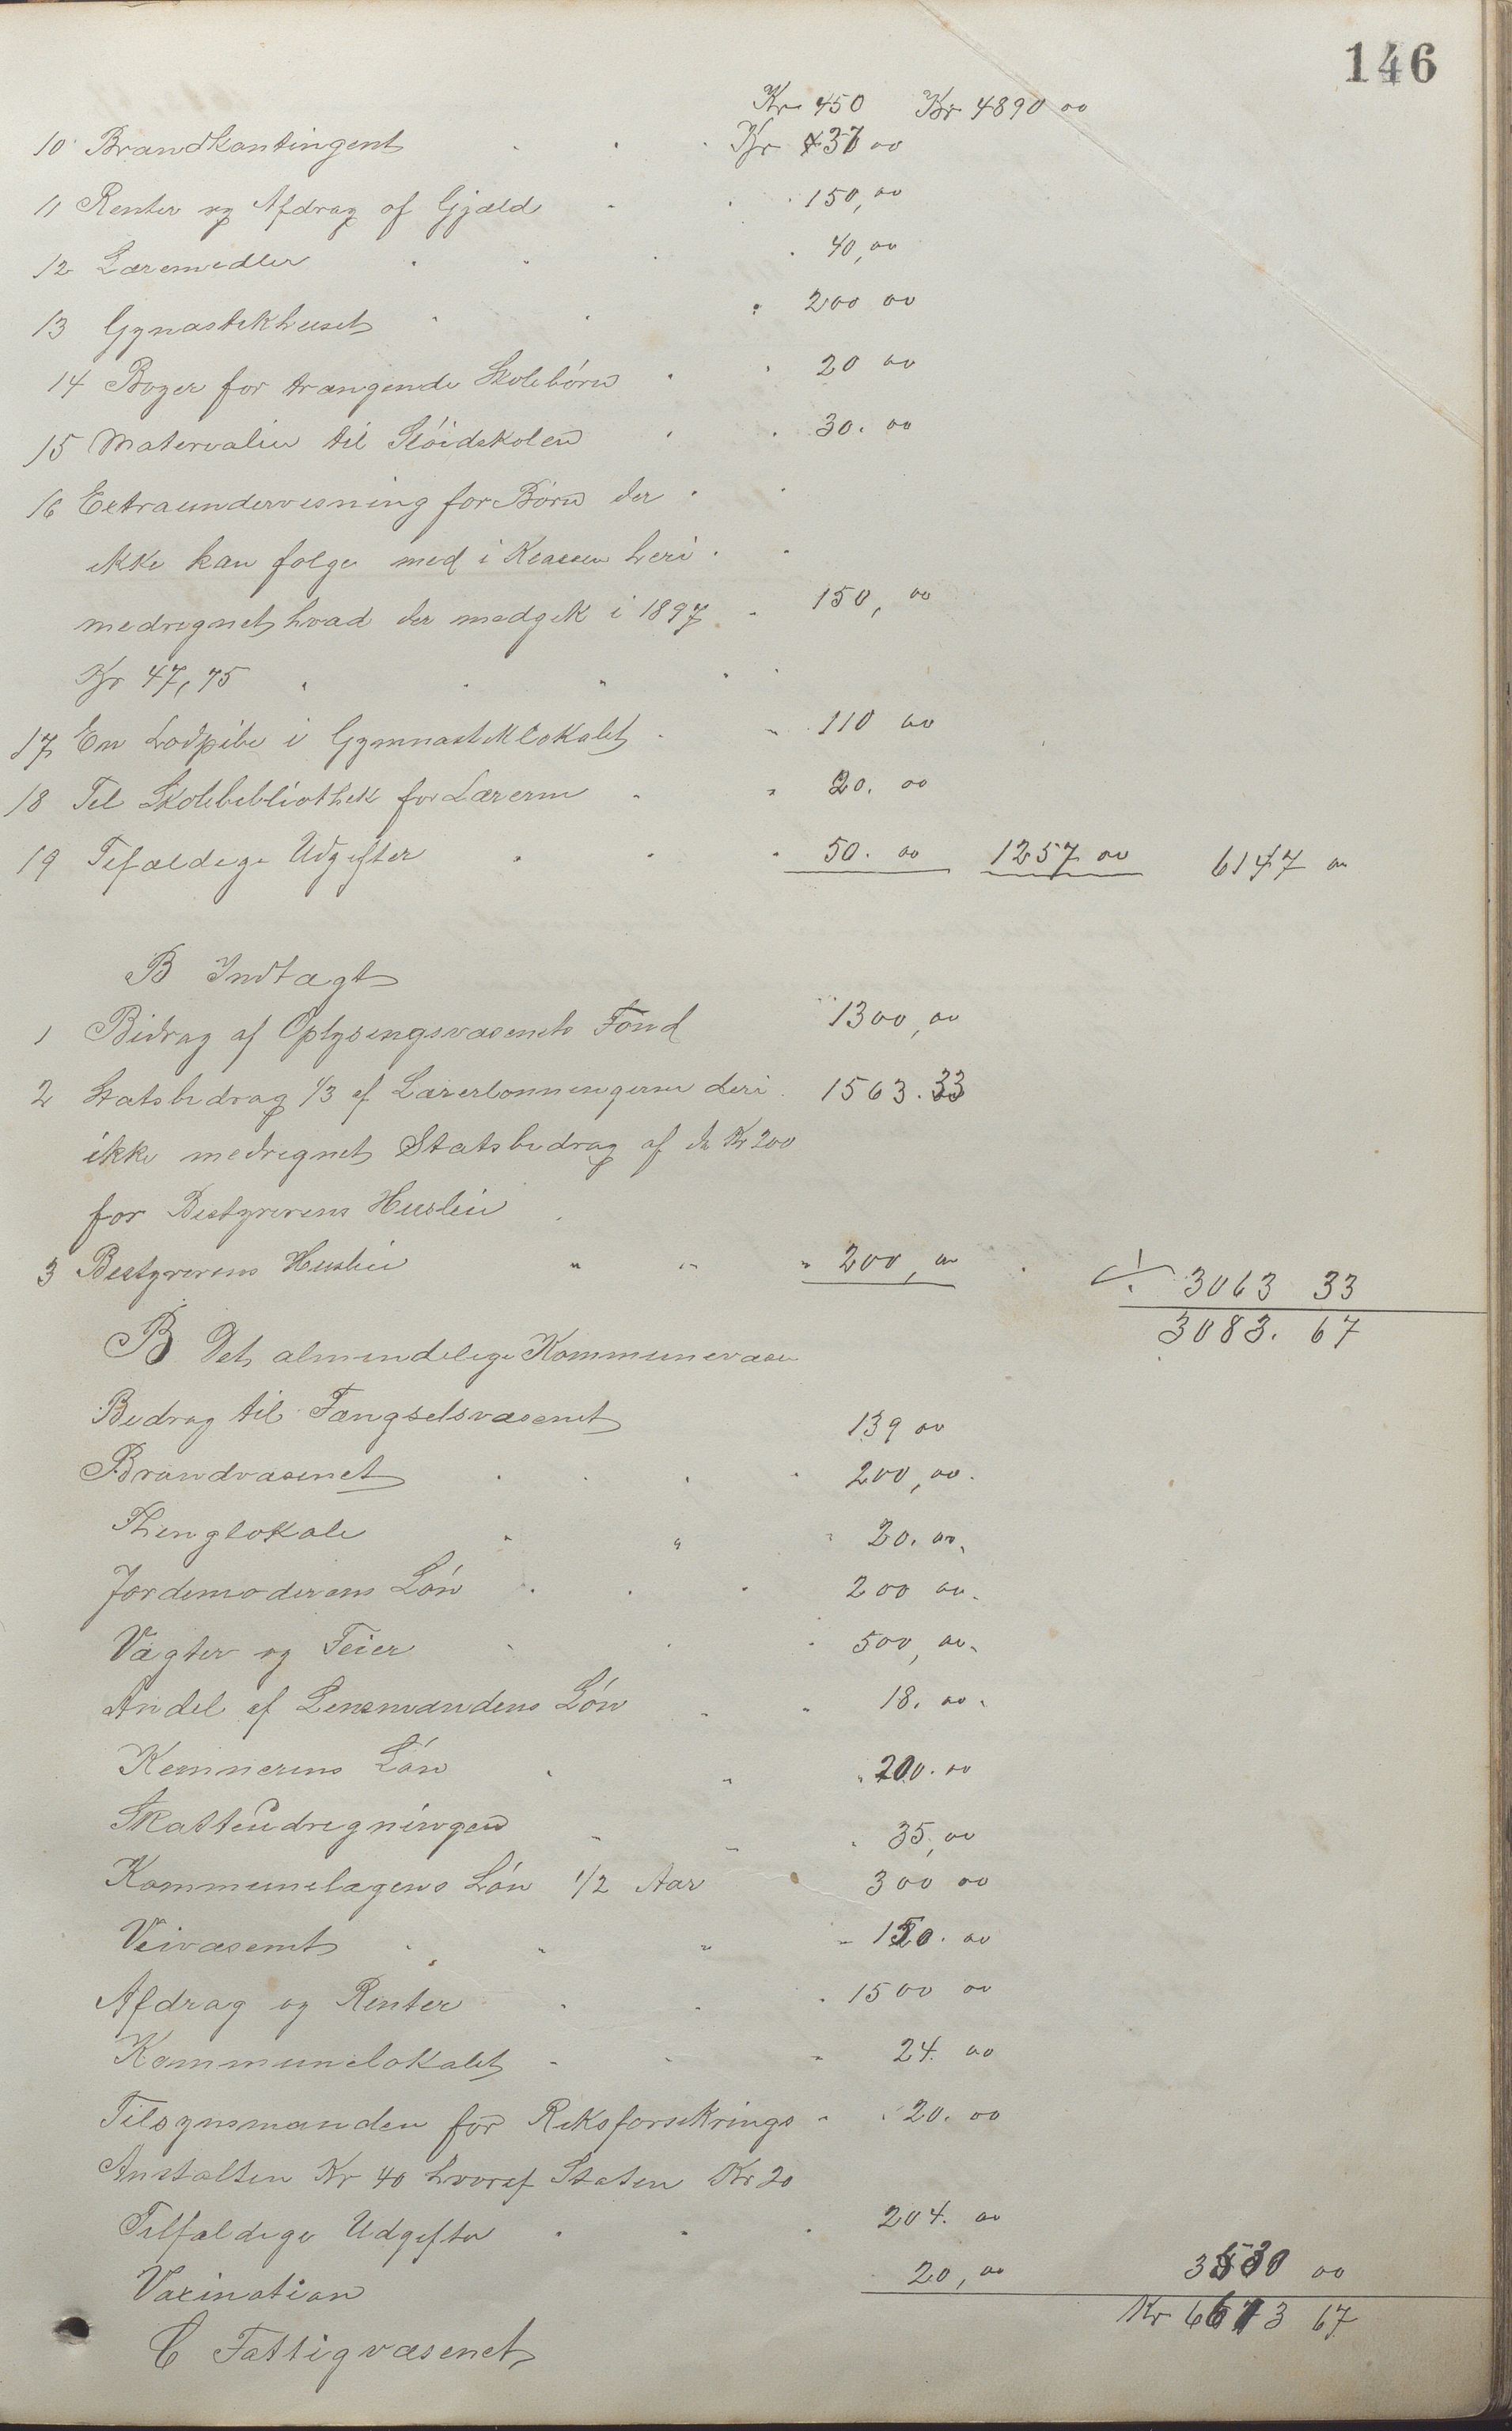 146
Kr 450 Kr 4890 00
10 Brandkontingent Kr 37 00
11 Renter og Afdrag af Gjæld 150,00
12 Læremedler 40,00
13 Gynastikhuset 200 00
14 Bøger for trængende Skolebórn 20 00
15 Materialier til Slóidskolen 30.00
16 Extraundervisning for Børn der
ikke kan følge med i Klassen heri
medregnet hvad der medgik i 1897 150,00
Kr 47,75
17 En Lodpibe i Gymnastiklokalet 110 00
18 Til Skolebibliothek for Lærerne 20.00
19 Tifældige Udgifter 50.00 1257 00 6147 00
B Indtægt
1 Bidrag af Oplysingsvæsenets Fond 1300,00
2 Statsbidrag 1/3 af Lærerlønningerne deri 1563.33
ikke medregnet Statsbidrag af de Kr 200
for Bestyrerens Husleie
3 Bestyrerens Husleie 200,00 ./. 3063 33
3083.67
B Det almindelige Kommunevæsen
Bidrag til Fængselsvæsenet 139 00
Brandvæsenet 200,00
Thinglokale 20.00
Jordemoderens Lón 200 00
Vægter og Feier 500,00
Andel af Lensmandens Lón 18.00
Kemnerens Lón 200.00
Skatteudregningen 35,00
Kommunelægens Lón 1/2 Aar 300 00
Veivæsenet 150.00
Afdrag og Renter 1500 00
Kommunelokalet 24.00
Tilsynsmanden for Riksforsikrings 20.00
Anstalten Kr 40 hvoraf Staten Kr 20
Tilfældige Udgifter 204.00
Vaxination 20,00 3530 00
Kr 6613 67
C Fattigvæsenet